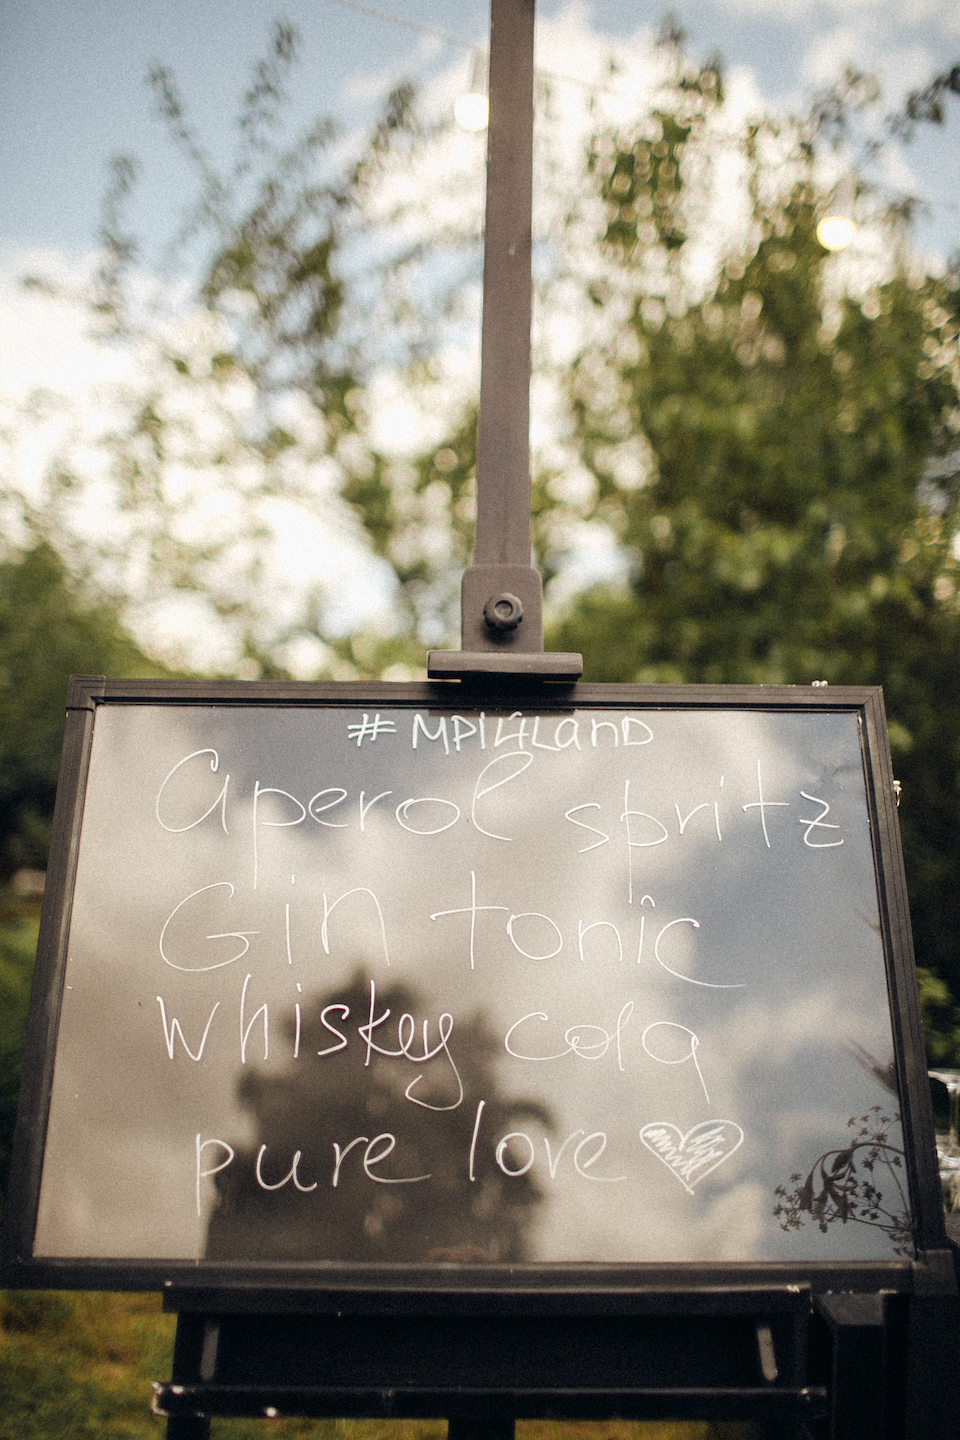 Aperol spritz
Gin tonic
whiskey cola
pure love